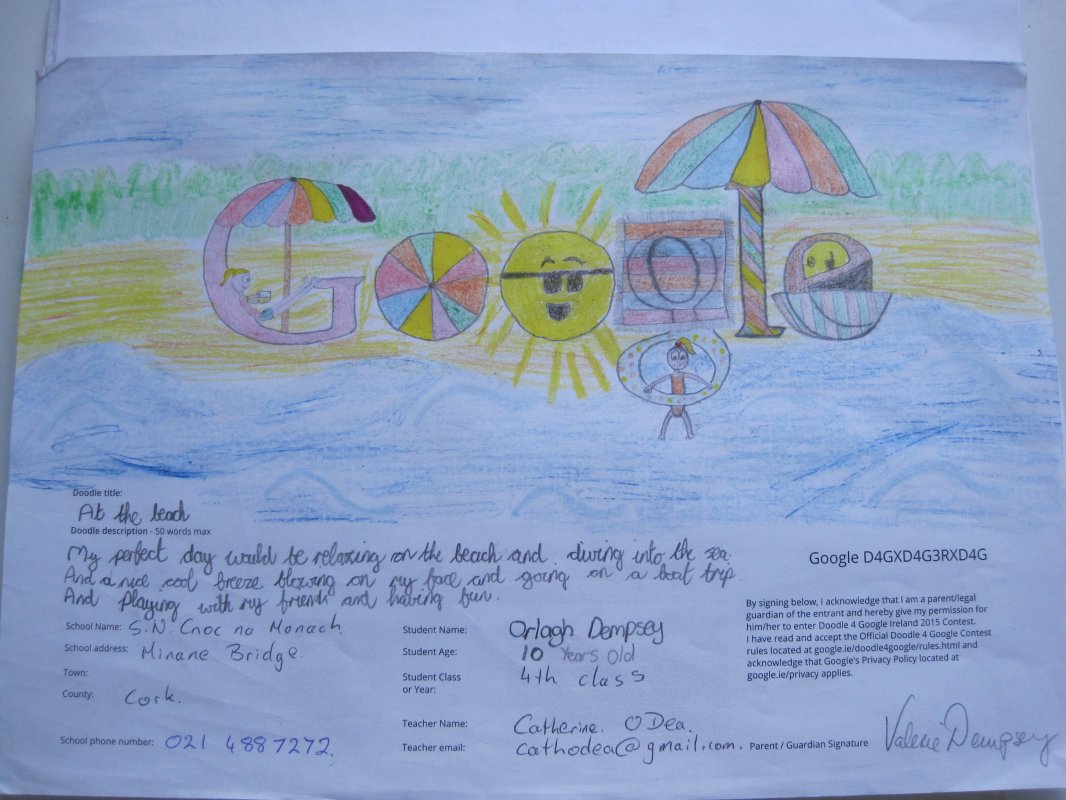 Google
Doodle title:
At the beach
Doodle description - 50 words max
My perfect day would be relaxing on the beach and diving into the sea.
And a nice cool breeze blowing on my face and going on a boat trip.
And playing with my friends and having fun.
School Name: S.N. Cnoc na Manach.
School address: Minane Bridge.
Town:
County: Cork.
School phone number: 021 4887272.
Student Name: Orlagh Dempsey
Student Age: 10 Years Old
Student Class
or Year: 4th class
Teacher Name: Catherine O Dea.
Teacher email: cathodea@gmail.com.
Google D4GXD4G3RXD4G
By signing below, I acknowledge that I am a parent/legal
guardian of the entrant and hereby give my permission for
him/her to enter Doodle 4 Google Ireland 2015 Contest.
I have read and accept the Official Doodle 4 Google Contest
rules located at google.ie/doodle4google/rules.html and
acknowledge that Google's Privacy Policy located at
google.ie/privacy applies.
Parent / Guardian Signature Valerie Dempsey